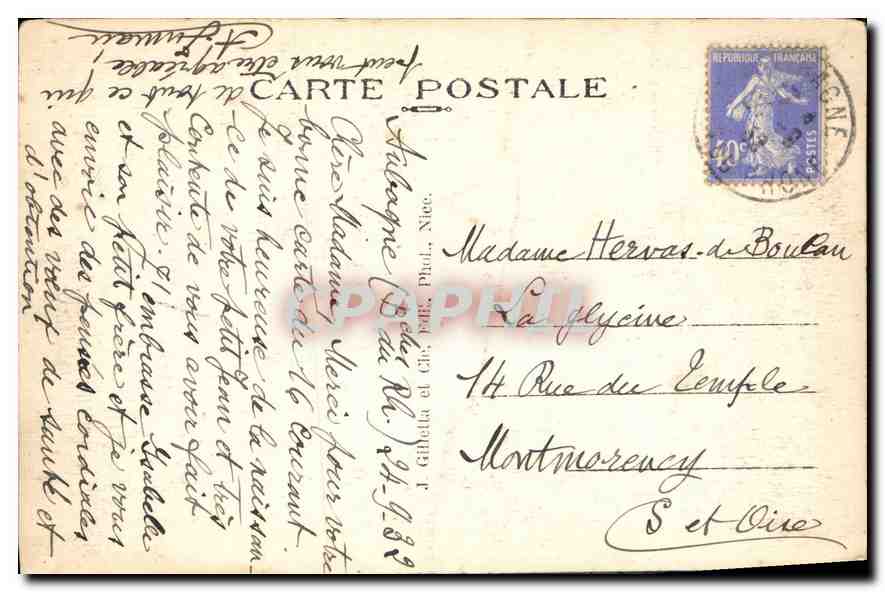 CARTE POSTALE
Aubagne (Bches du Rh.) 24-9-32
Chère Madame, Merci pour votre
bonne carte du 16 courant
Je suis heureuse de la naissan-
ce de votre petit Jean et très
contente de vous avoir fait
plaisir. J'embrasse Isabelle
et son petit frère et je vous
envoie des pensées cordiales
avec des vœux de santé et
d'obtention
de tout ce qui
peut vous être agréable!
J. Gilletta et Cie, Edit. Phot., Nice.
REPUBLIQUE FRANÇAISE
40c
POSTES
Madame Hervas-de Boulan
La glycine
14 Rue du Temple
Montmorency
S et Oise
CPAPHIL